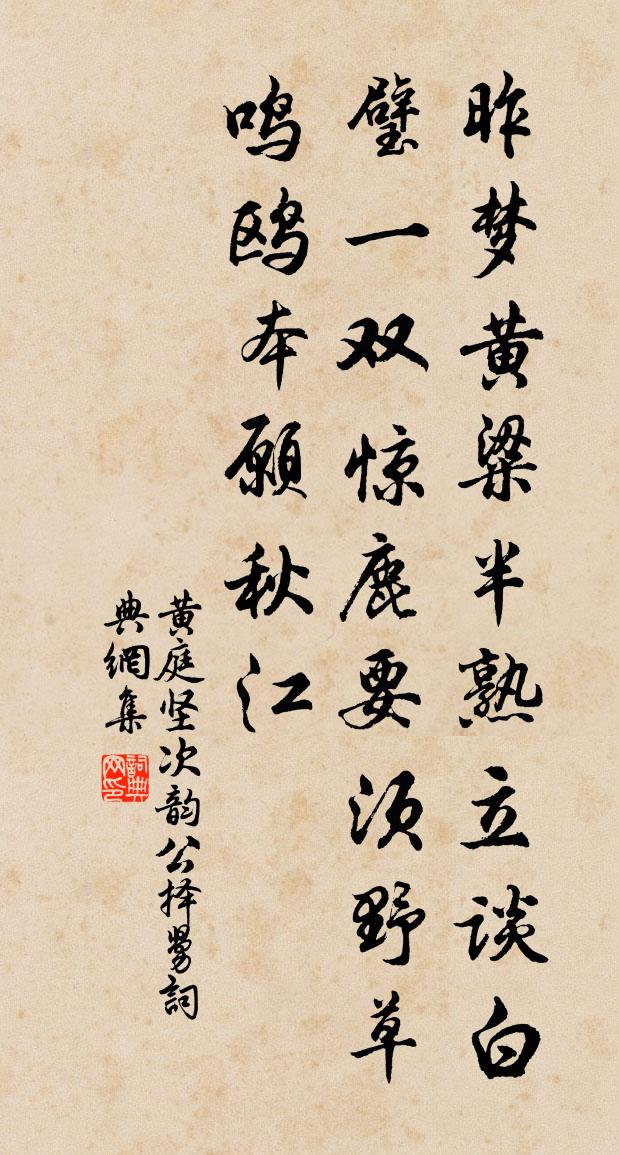 昨梦黄粱半熟立谈白
璧一双惊鹿要须野草
鸣鸥本愿秋江
黄庭坚次韵公择舅詞
典網集
詞典网印